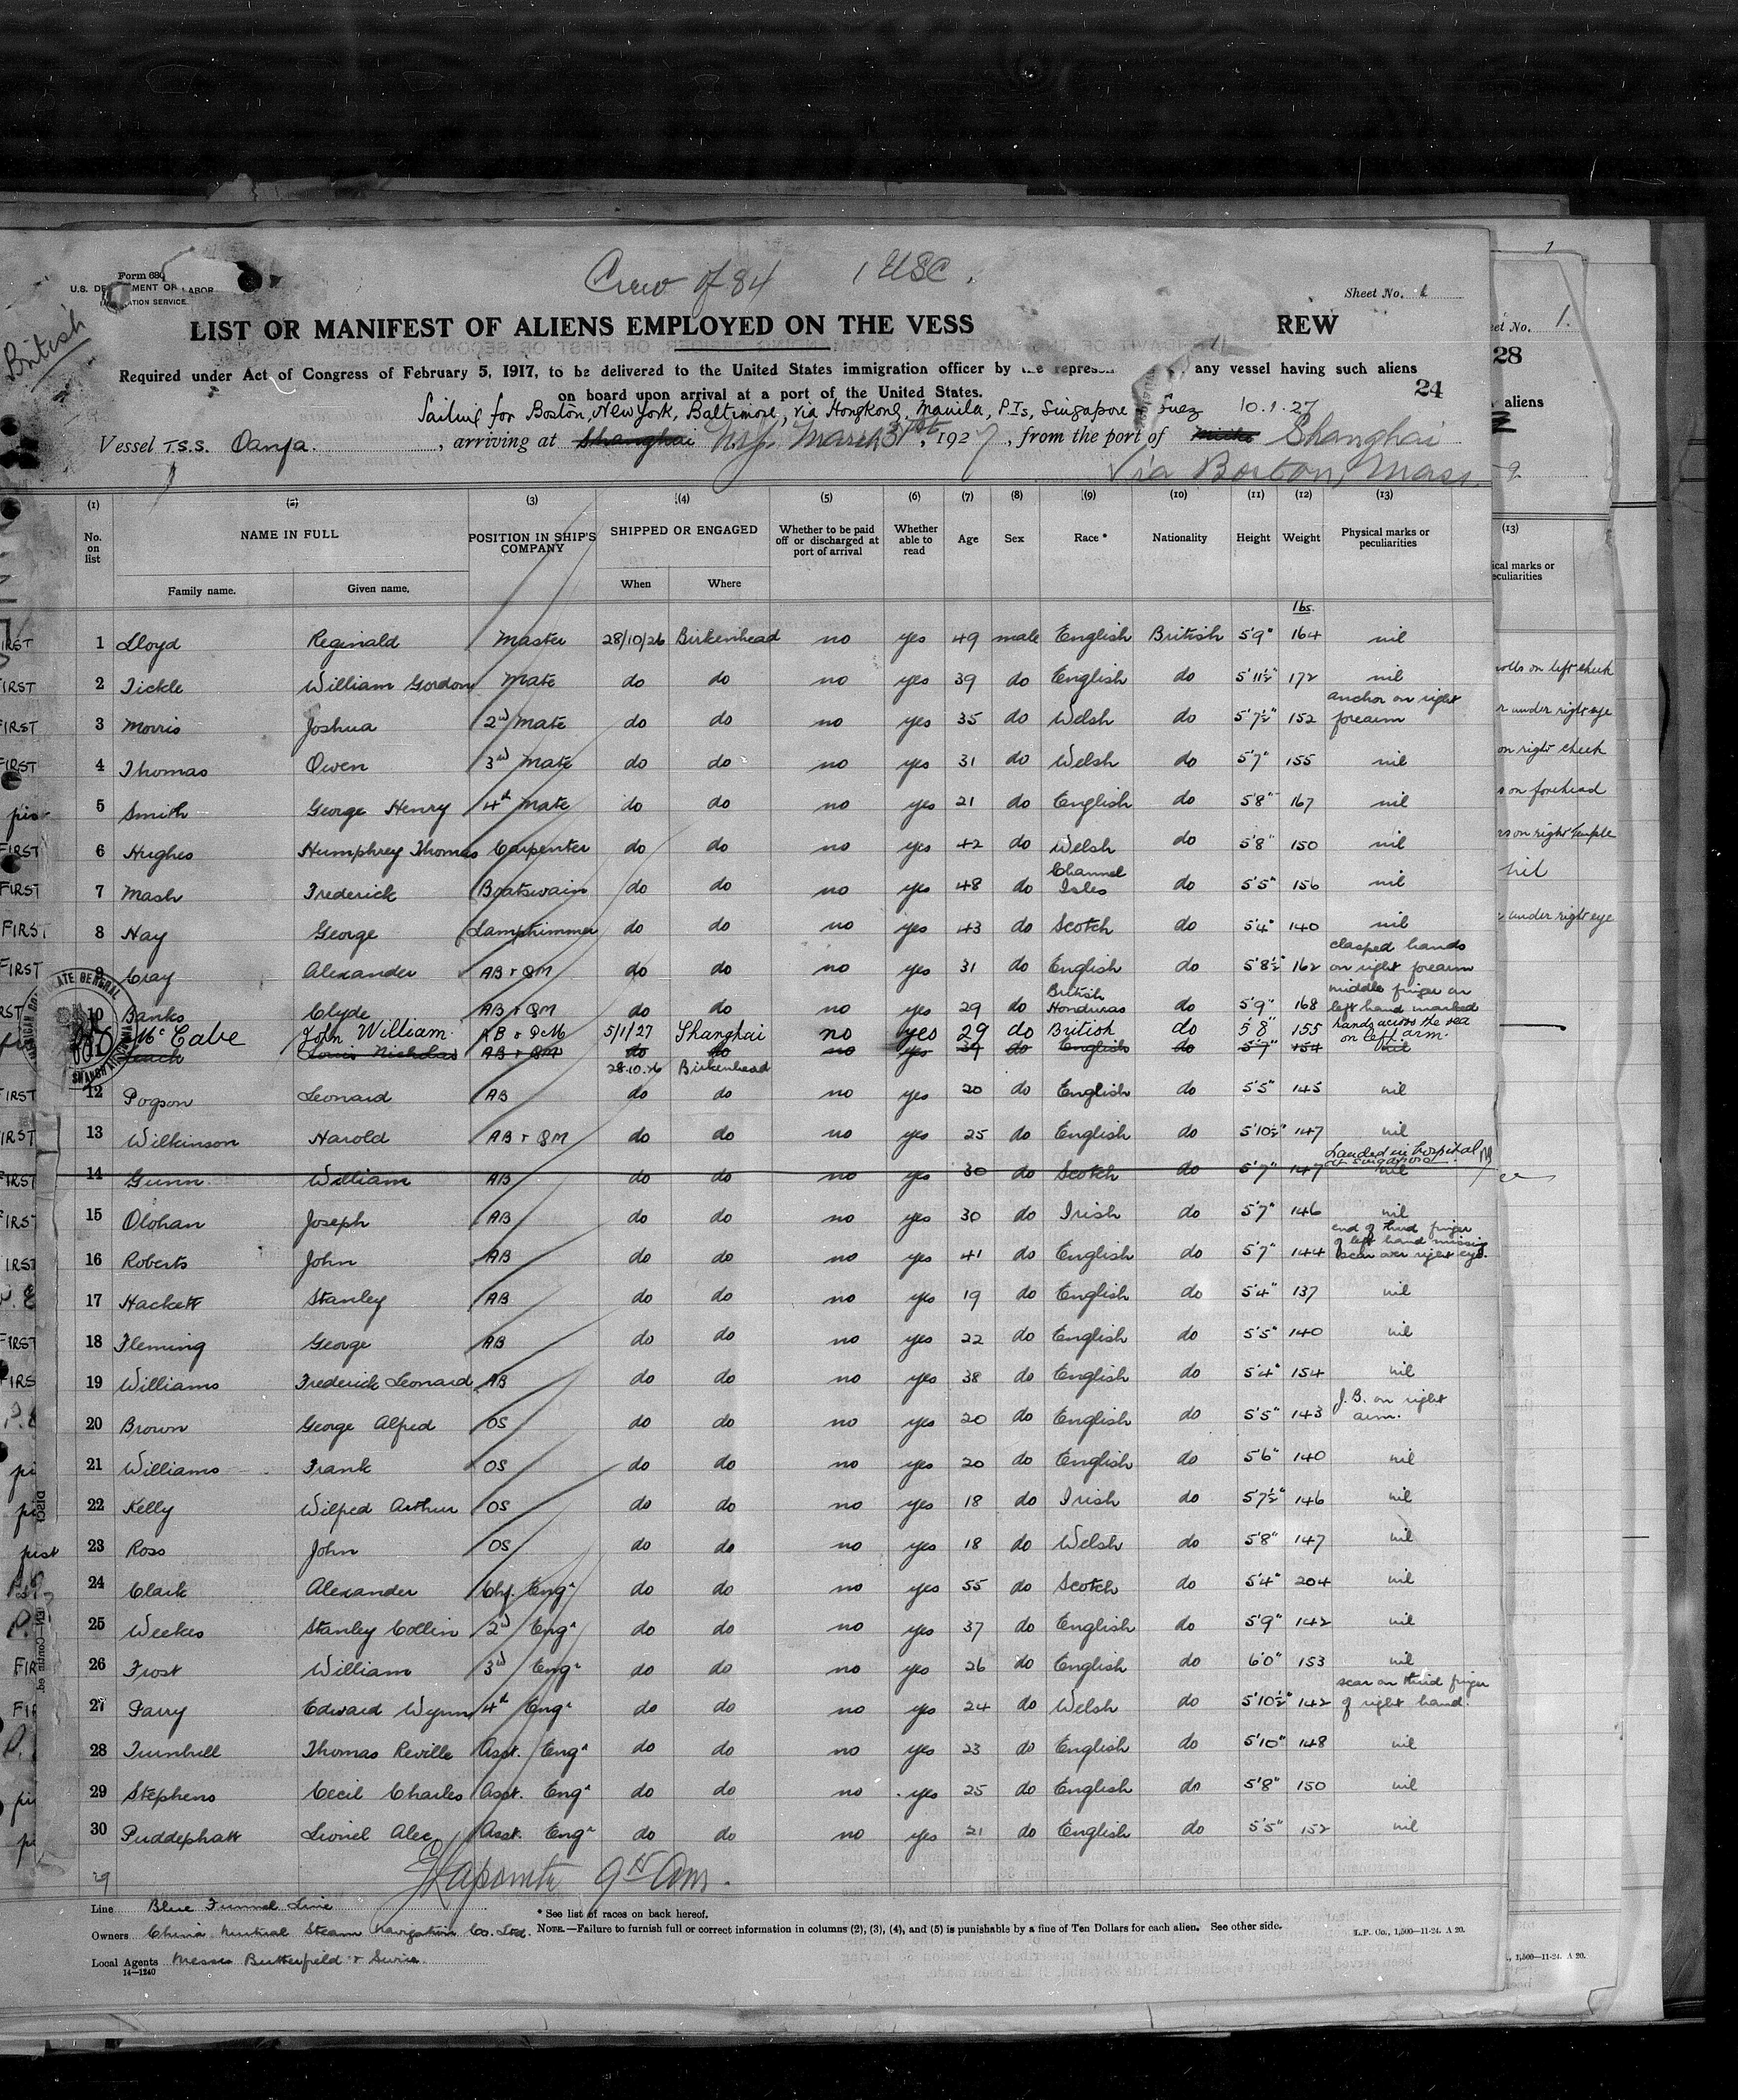 Crew of 84 1 USC.
Form 680
U.S. DEPARTMENT OF LABOR
IMMIGRATION SERVICE
Sheet No. 1
British
LIST OR MANIFEST OF ALIENS EMPLOYED ON THE VESS REW
Required under Act of Congress of February 5, 1917, to be delivered to the United States immigration officer by the represen any vessel having such aliens
on board upon arrival at a port of the United States. 24
Sailing for Boston, New York, Baltimore, via Hongkong, Manila, P.Is, Singapore Suez 10.1.27
Vessel T.S.S. Oanfa, arriving at Shanghai N.Y. March 31st, 1927, from the port of Shanghai
via Boston, Mass.
(1) (2) (3) (4) (5) (6) (7) (8) (9) (10) (11) (12) (13)
No. on list NAME IN FULL POSITION IN SHIP'S COMPANY SHIPPED OR ENGAGED Whether to be paid off or discharged at port of arrival Whether able to read Age Sex Race * Nationality Height Weight Physical marks or peculiarities
Family name. Given name. When Where
lbs.
1 Lloyd Reginald Master 28/10/26 Birkenhead no yes 49 male English British 5'9" 164 nil
2 Tickle William Gordon Mate do do no yes 39 do English do 5'11½" 172 nil
3 Morris Joshua 2nd Mate do do no yes 35 do Welsh do 5'7½" 152 anchor on right forearm
4 Thomas Owen 3rd Mate do do no yes 31 do Welsh do 5'7" 155 nil
5 Smith George Henry 4th Mate do do no yes 21 do English do 5'8" 167 nil
6 Hughes Humphrey Thomas Carpenter do do no yes 42 do Welsh do 5'8" 150 nil
7 Mash Frederick Boatswain do do no yes 48 do Channel Isles do 5'5" 156 nil
8 Hay George Lamptrimmer do do no yes 43 do Scotch do 5'4" 140 nil
9 Cray Alexander AB + QM do do no yes 31 do English do 5'8½" 162 clasped hands on right forearm
10 Banks Clyde AB + QM do do no yes 29 do British Honduras do 5'9" 168 middle finger on left hand marked
McCabe John William AB + QM 5/1/27 Shanghai no yes 29 do British do 5'8" 155 hands across the sea on left arm.
11 Louis Nicholas AB + QM do do no yes 39 do English do 5'7" 154 nil
28.10.26 Birkenhead
12 Pogson Leonard AB do do no yes 20 do English do 5'5" 145 nil
13 Wilkinson Harold AB + QM do do no yes 25 do English do 5'10½" 147 nil
14 Gunn William AB do do no yes 30 do Scotch do 5'7" 147 nil Landed in hospital at Singapore
15 Olohan Joseph AB do do no yes 30 do Irish do 5'7" 146 nil
16 Roberts John AB do do no yes 41 do English do 5'7" 144 end of third finger of left hand missing scar over right eye.
17 Hackett Stanley AB do do no yes 19 do English do 5'4" 137 nil
18 Fleming George AB do do no yes 22 do English do 5'5" 140 nil
19 Williams Frederick Leonard AB do do no yes 38 do English do 5'4" 154 nil
20 Brown George Alfred OS do do no yes 20 do English do 5'5" 143 J.B. on right arm.
21 Williams Frank OS do do no yes 20 do English do 5'6" 140 nil
22 Kelly Wilfred Arthur OS do do no yes 18 do Irish do 5'7½" 146 nil
23 Ross John OS do do no yes 18 do Welsh do 5'8" 147 nil
24 Clark Alexander Chf. Engr do do no yes 55 do Scotch do 5'4" 204 nil
25 Weekes Stanley Collin 2nd Engr do do no yes 37 do English do 5'9" 142 nil
26 Frost William 3rd Engr do do no yes 26 do English do 6'0" 153 nil
27 Parry Edward Wynn 4th Engr do do no yes 24 do Welsh do 5'10½" 142 scar on third finger of right hand.
28 Turnbull Thomas Reville Asst. Engr do do no yes 23 do English do 5'10" 148 nil
29 Stephens Cecil Charles Asst. Engr do do no yes 25 do English do 5'8" 150 nil
30 Puddephatt Lionel Alec Asst. Engr do do no yes 21 do English do 5'5" 152 nil
29
Line Blue Funnel Line
* See list of races on back hereof.
Owners China Mutual Steam Navigation Co. Ltd. NOTE.—Failure to furnish full or correct information in columns (2), (3), (4), and (5) is punishable by a fine of Ten Dollars for each alien. See other side. L.P. Co., 1,500—11-24. A 20.
Local Agents Messrs Butterfield & Swire.
14—1240